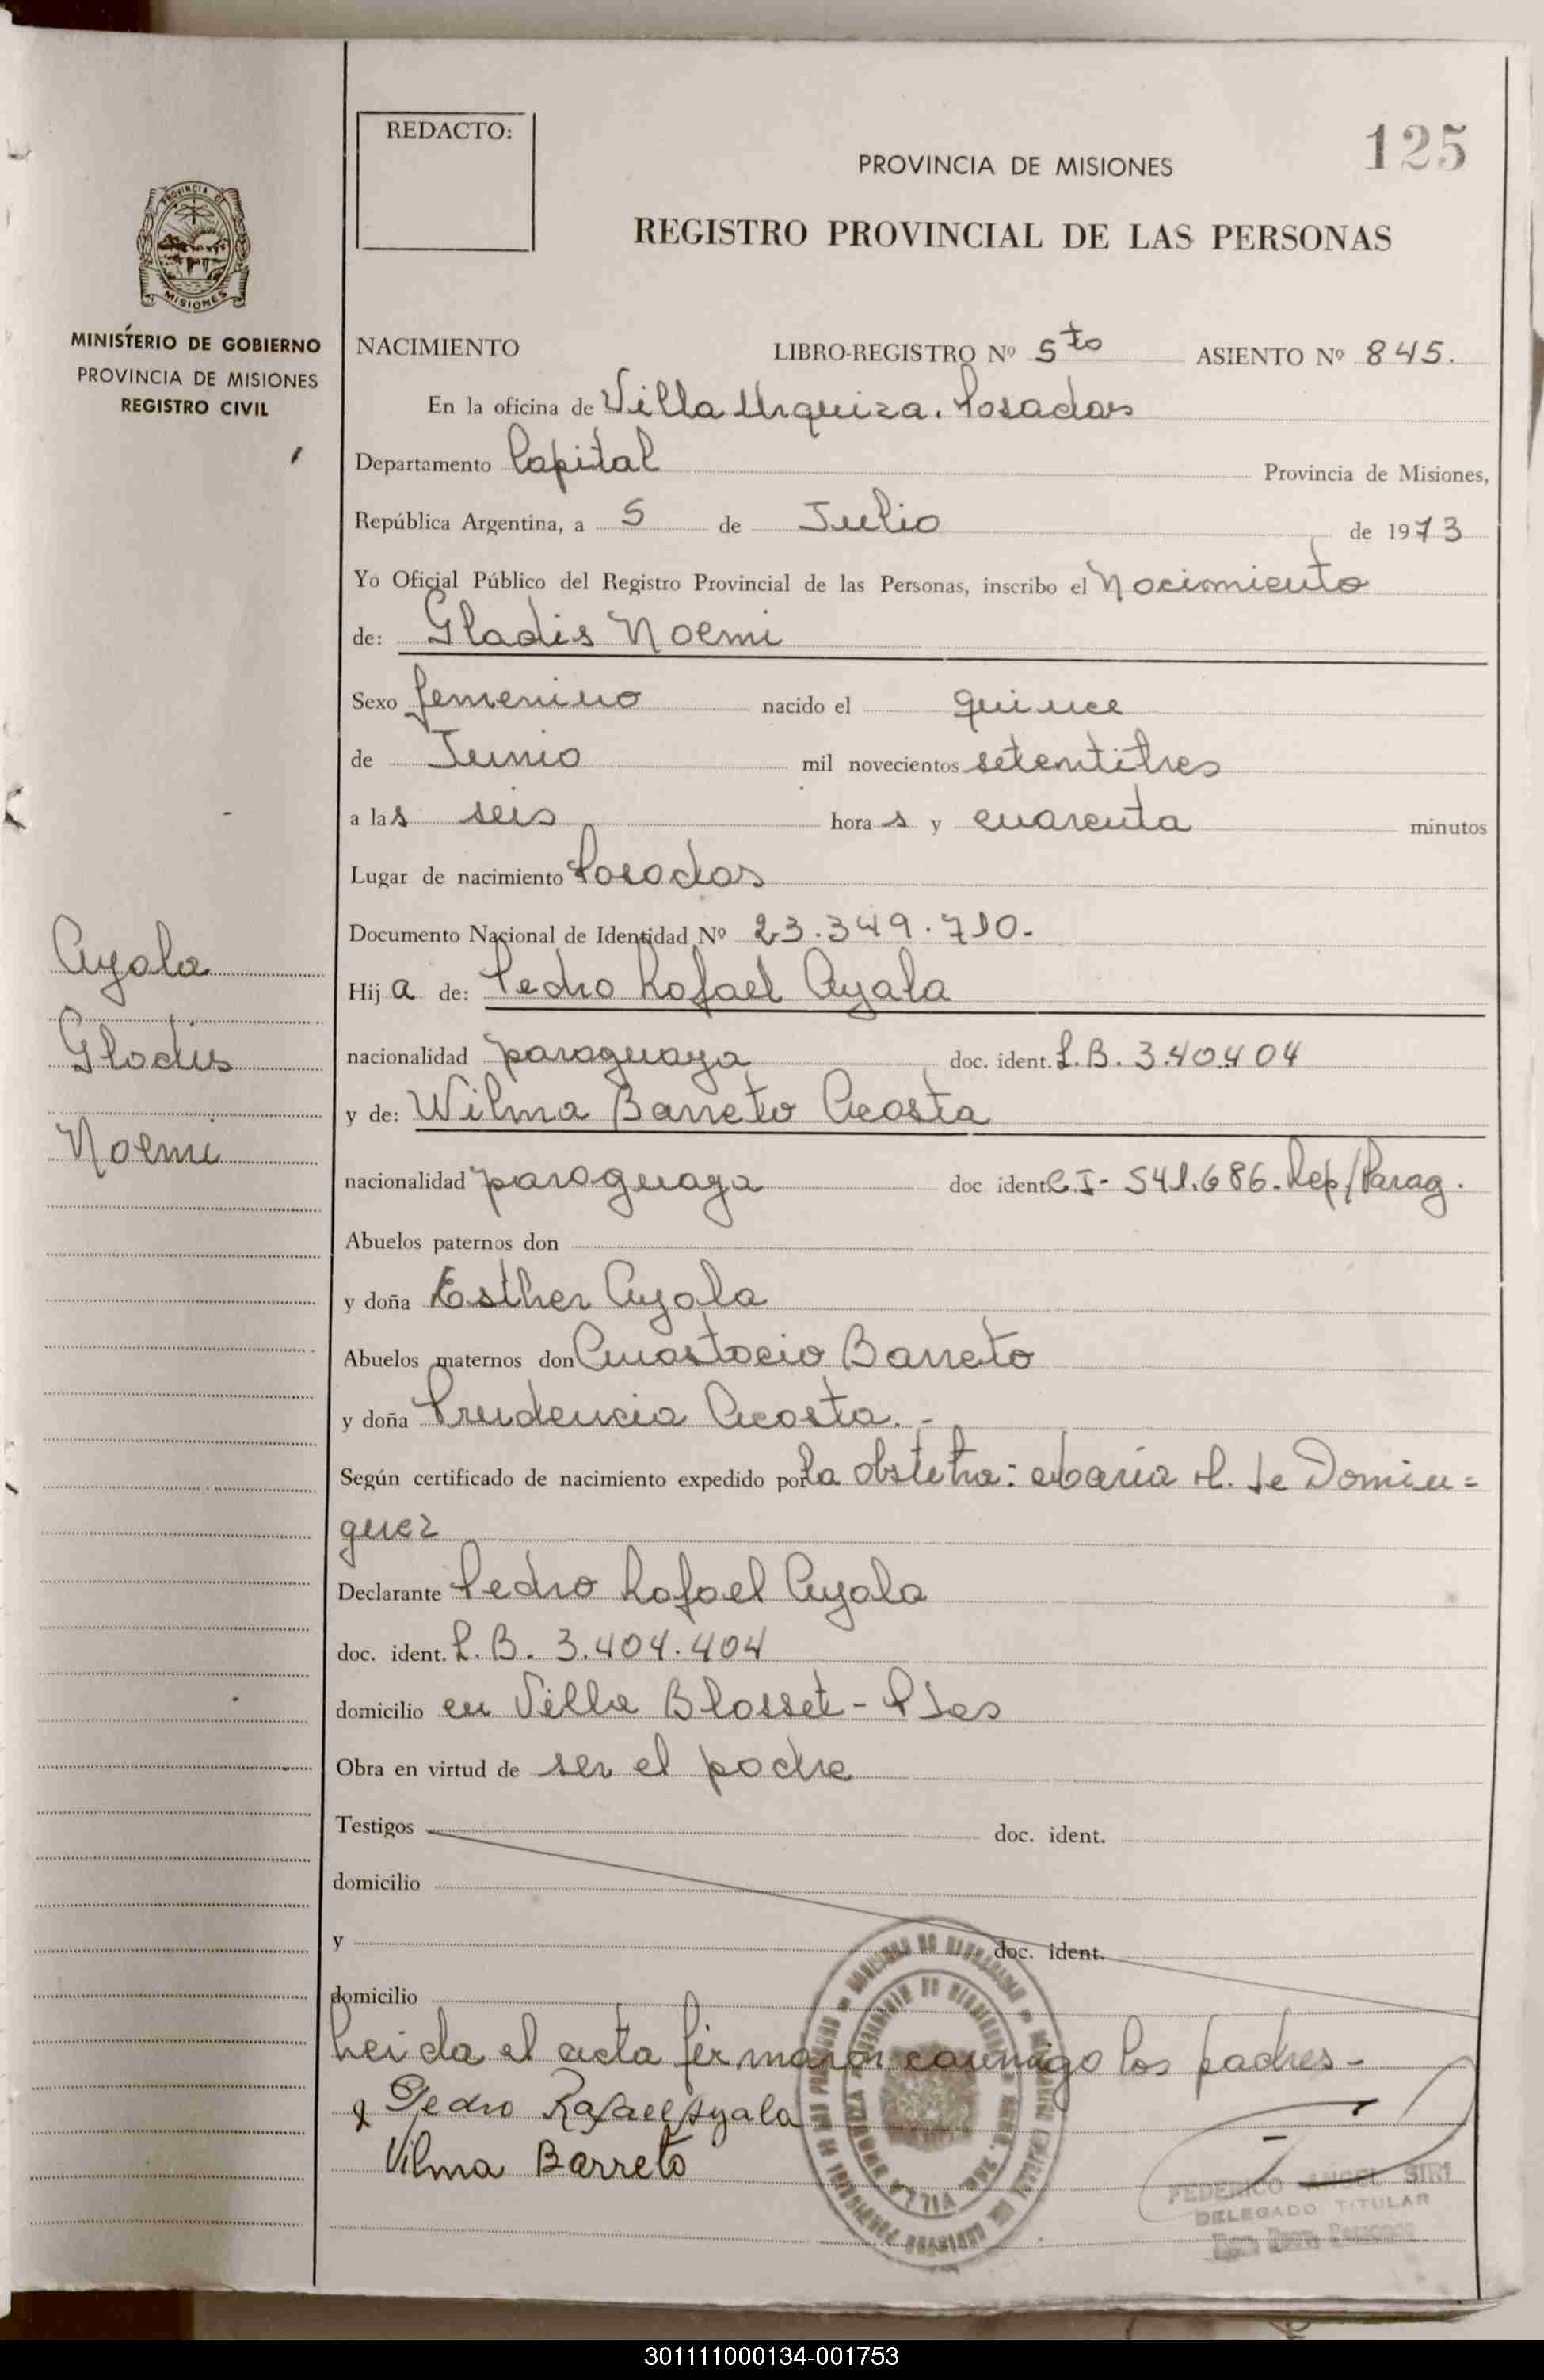 REDACTO:
125
PROVINCIA DE MISIONES
REGISTRO PROVINCIAL DE LAS PERSONAS
PROVINCIA DE
MISIONES
MINISTERIO DE GOBIERNO
PROVINCIA DE MISIONES
REGISTRO CIVIL
NACIMIENTO LIBRO-REGISTRO Nº 5to ASIENTO Nº 845.
En la oficina de Villa Urquiza. Posadas
Departamento Capital Provincia de Misiones,
República Argentina, a 5 de Julio de 1973
Yo Oficial Público del Registro Provincial de las Personas, inscribo el Nacimiento
de: Gladis Noemi
Sexo femenino nacido el quince
de Junio mil novecientos setentitres
a las seis horas y cuarenta minutos
Lugar de nacimiento Posadas
Documento Nacional de Identidad Nº 23.349.710.
Ayala
Gladis
Noemi
Hija de: Pedro Rafael Ayala
nacionalidad paraguaya doc. ident. L.B. 3.40.404
y de: Wilma Barreto Acosta
nacionalidad paraguaya doc ident C.I- 541.686. Rep/Parag.
Abuelos paternos don
y doña Esther Ayala
Abuelos maternos don Anastacio Barreto
y doña Prudencia Acosta. -
Según certificado de nacimiento expedido por la obstetra: María H. de Domin=
guez
Declarante Pedro Rafael Ayala
doc. ident. L.B. 3.404.404
domicilio en Villa Blosset - Pdas
Obra en virtud de ser el padre
Testigos doc. ident.
domicilio
y doc. ident.
domicilio
Leida el acta firmaron conmigo los padres-
Pedro Rafael Ayala
Vilma Barreto
FEDERICO ANGEL SIRI
DELEGADO TITULAR
301111000134-001753